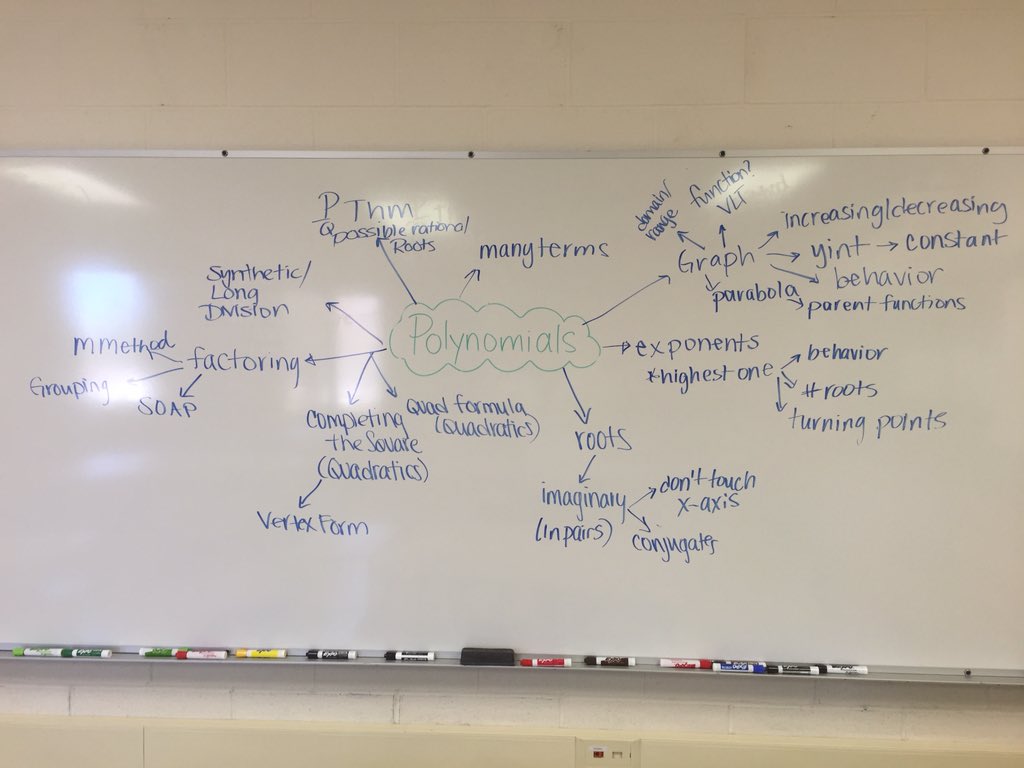 Polynomials
P Thm
Q possible rational
Roots
many terms
Synthetic/
Long
Division
factoring
M Method
Grouping
SOAP
Completing
the Square
(Quadratics)
Vertex Form
Quad formula
(Quadratics)
roots
imaginary
(in pairs)
don't touch
x-axis
conjugates
exponents
*highest one
behavior
# roots
turning points
Graph
domain/
range
function?
VLT
increasing/decreasing
yint → constant
behavior
parabola
parent functions